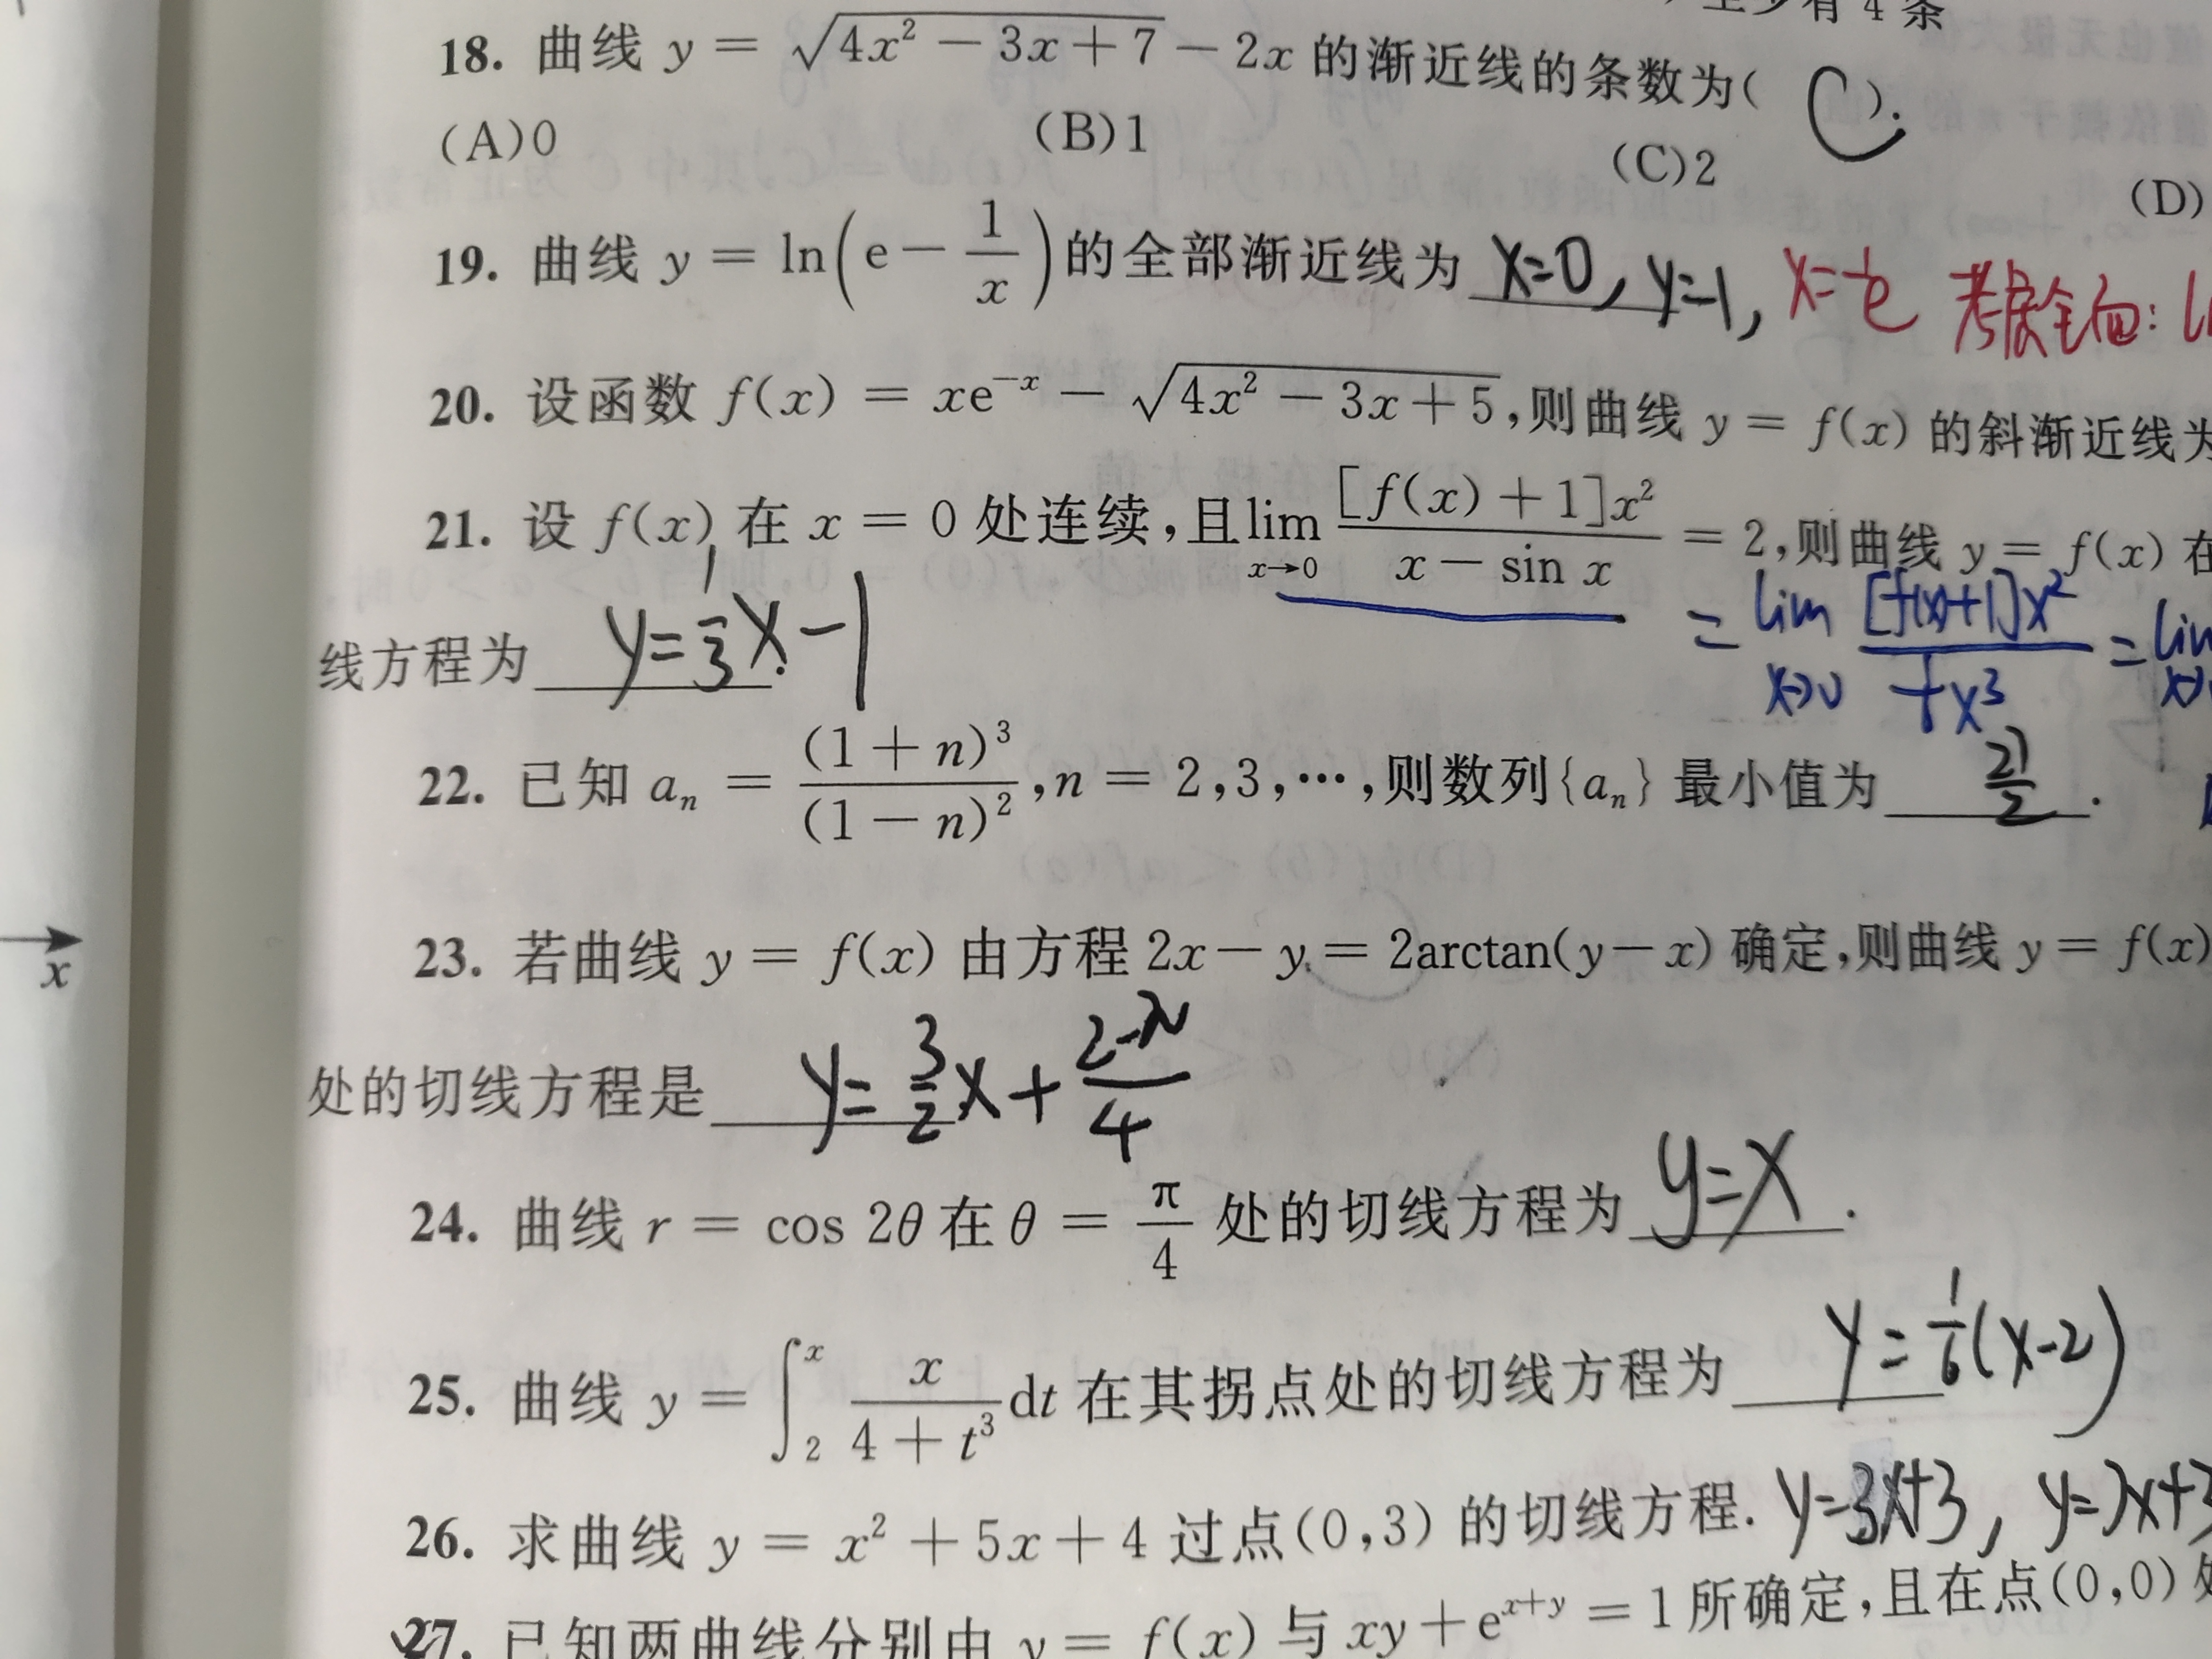 至少有 4 条
18. 曲线 y = √(4x² − 3x + 7) − 2x 的渐近线的条数为( C ).
(A)0 (B)1 (C)2 (D)
19. 曲线 y = ln(e − 1/x) 的全部渐近线为 x=0, y=1, x=1/e 考虑全面:
20. 设函数 f(x) = xe⁻ˣ − √(4x² − 3x + 5),则曲线 y = f(x) 的斜渐近线为
21. 设 f(x) 在 x = 0 处连续,且 lim x→0 [f(x) + 1]x² / (x − sin x) = 2,则曲线 y = f(x) 在
= lim x→0 [f(x)+1]x² / x³ = lim
线方程为 y=1/3 x−1
22. 已知 aₙ = (1 + n)³/(1 − n)², n = 2,3,⋯,则数列{aₙ} 最小值为 27/2 .
23. 若曲线 y = f(x) 由方程 2x − y = 2arctan(y − x) 确定,则曲线 y = f(x)
处的切线方程是 y= 3/2 x + (2−π)/4
24. 曲线 r = cos 2θ 在 θ = π/4 处的切线方程为 y=x .
25. 曲线 y = ∫₂ˣ x/(4 + t³) dt 在其拐点处的切线方程为 y = 1/6 (x−2)
26. 求曲线 y = x² + 5x + 4 过点(0,3) 的切线方程. y=3x+3, y=7x+3
27. 已知两曲线分别由 y = f(x) 与 xy + eˣ⁺ʸ = 1 所确定,且在点(0,0) 处
x